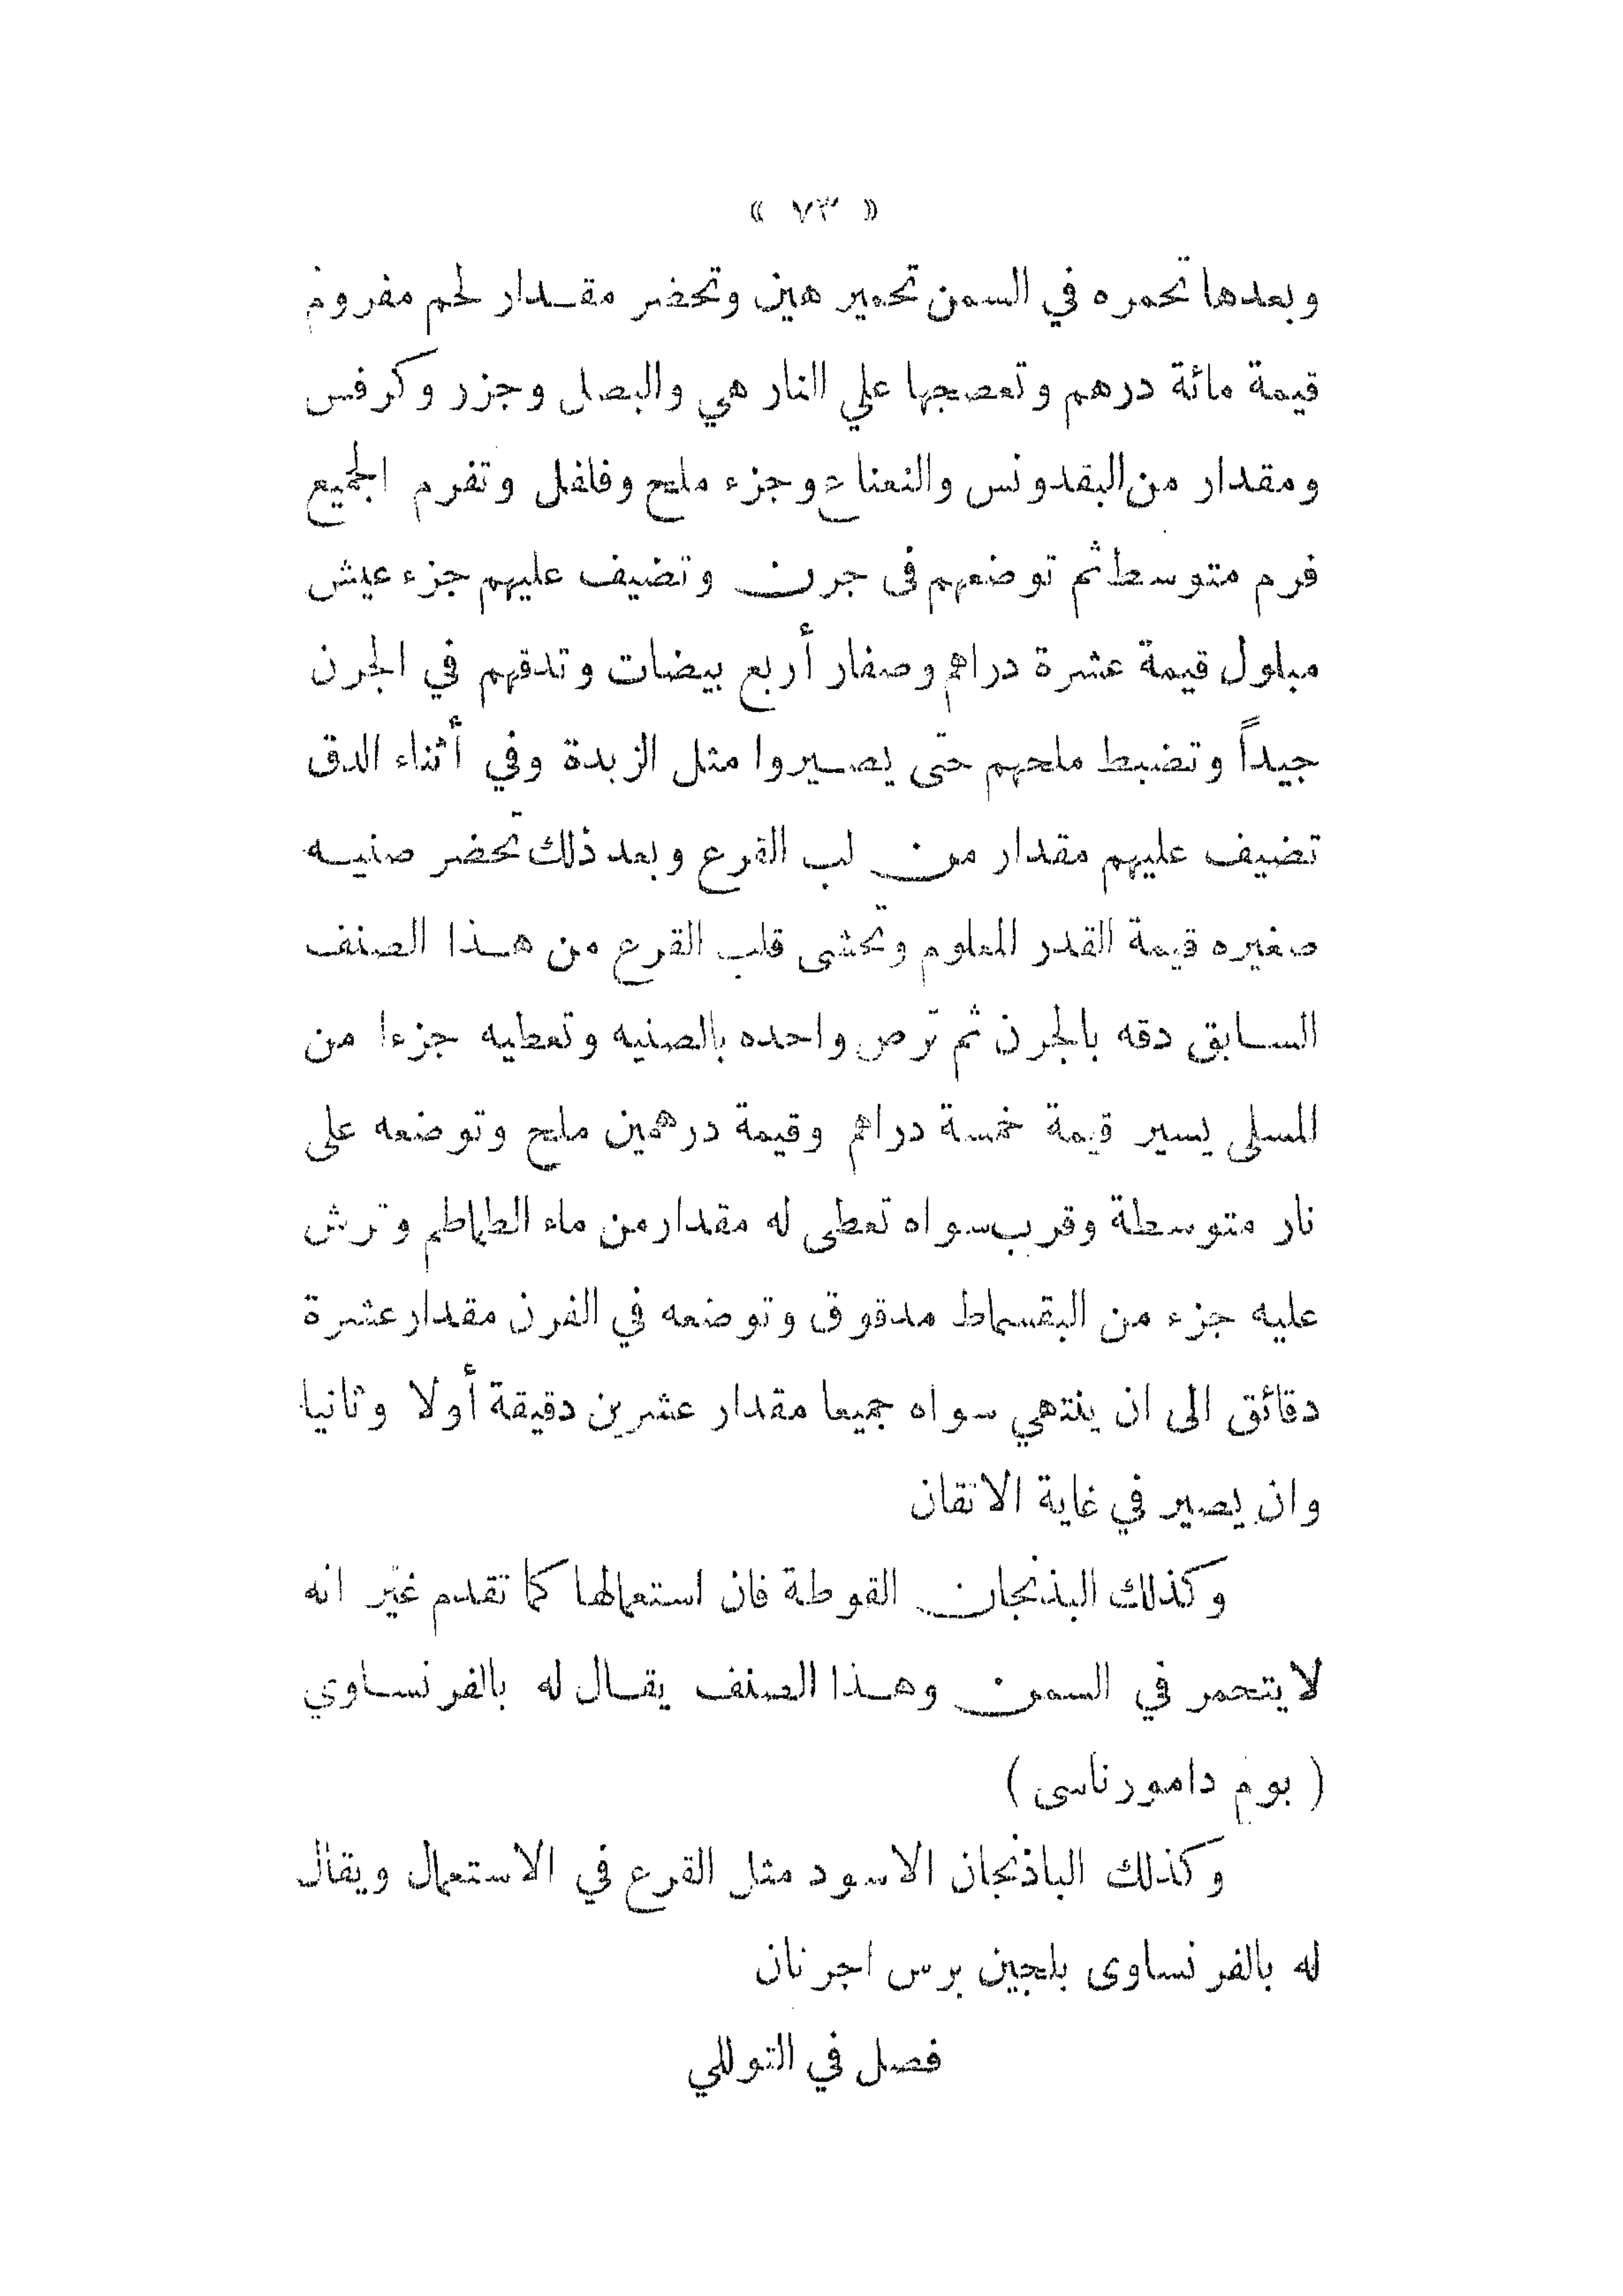 « ٧٣ »
وبعدها تحمره في السمن تحمير هين وتحضر مقدار لحم مفروم
قيمة مائة درهم وتعصجها علي النار هي والبصل وجزر وكرفس
ومقدار من البقدونس والنعناع وجزء ملح وفلفل وتفرم الجميع
فرم متوسط ثم توضعهم فى جرن وتضيف عليهم جزء عيش
مبلول قيمة عشرة دراهم وصفار أربع بيضات وتدقهم في الجرن
جيداً وتضبط ملحهم حتى يصيروا مثل الزبدة وفي أثناء الدق
تضيف عليهم مقدار من لب القرع وبعد ذلك تحضر صنيه
صغيره قيمة القدر المعلوم وتحشى قلب القرع من هذا الصنف
السابق دقه بالجرن ثم ترص واحده بالصنيه وتعطيه جزءا من
المسلى يسير قيمة خمسة دراهم وقيمة درهمين ملح وتوضعه على
نار متوسطة وقرب سواه تعطى له مقدار من ماء الطماطم وترش
عليه جزء من البقسماط مدقوق وتوضعه في الفرن مقدار عشرة
دقائق الى ان ينتهي سواه جميعا مقدار عشرين دقيقة أولا وثانيا
وان يصير في غاية الاتقان
وكذلك البذنجان القوطة فان استعمالها كما تقدم غير انه
لا يتحمر في السمن وهذا الصنف يقال له بالفرنساوي
( بوم دامورناسى )
وكذلك الباذنجان الاسود مثل القرع في الاستعمال ويقال
له بالفرنساوى بلجين برس اجرنان
فصل في التوللي